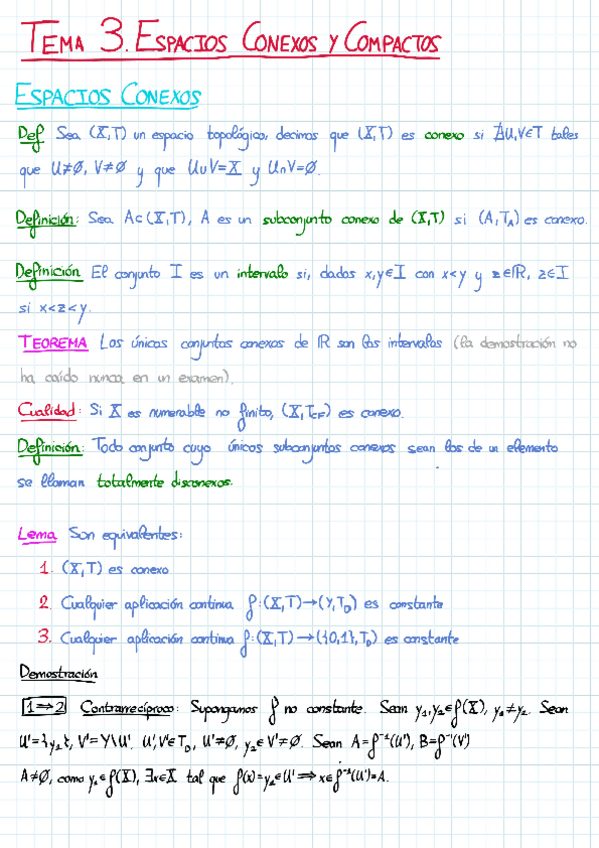 TEMA 3. ESPACIOS CONEXOS Y COMPACTOS
ESPACIOS CONEXOS
Def Sea (X,T) un espacio topológico, decimos que (X,T) es conexo si ∄U,V∈T tales
que U≠∅, V≠∅ y que U∪V=X y U∩V=∅.
Definición: Sea A⊂(X,T), A es un subconjunto conexo de (X,T) si (A,T_A) es conexo.
Definición El conjunto I es un intervalo si, dados x,y∈I con x<y y z∈ℝ, z∈I
si x<z<y.
TEOREMA Los únicos conjuntos conexos de ℝ son los intervalos (la demostración no
ha caído nunca en un examen).
Cualidad: Si X es numerable no finito, (X,T_CF) es conexo.
Definición: Todo conjunto cuyo únicos subconjuntos conexos sean los de un elemento
se llaman totalmente disconexos.
Lema Son equivalentes:
1. (X,T) es conexo
2. Cualquier aplicación continua f:(X,T)→(Y,T_D) es constante
3. Cualquier aplicación continua f:(X,T)→({0,1},T_D) es constante
Demostración
1⇒2 Contrarrecíproco: Supongamos f no constante. Sean y₁,y₂∈f(X), y₁≠y₂. Sean
U'={y₁}, V'=Y\U'. U',V'∈T_D, U'≠∅, y₂∈V'≠∅. Sean A=f⁻¹(U'), B=f⁻¹(V')
A≠∅, como y₁∈f(X), ∃x∈X tal que f(x)=y₁∈U'⇒x∈f⁻¹(U')=A.